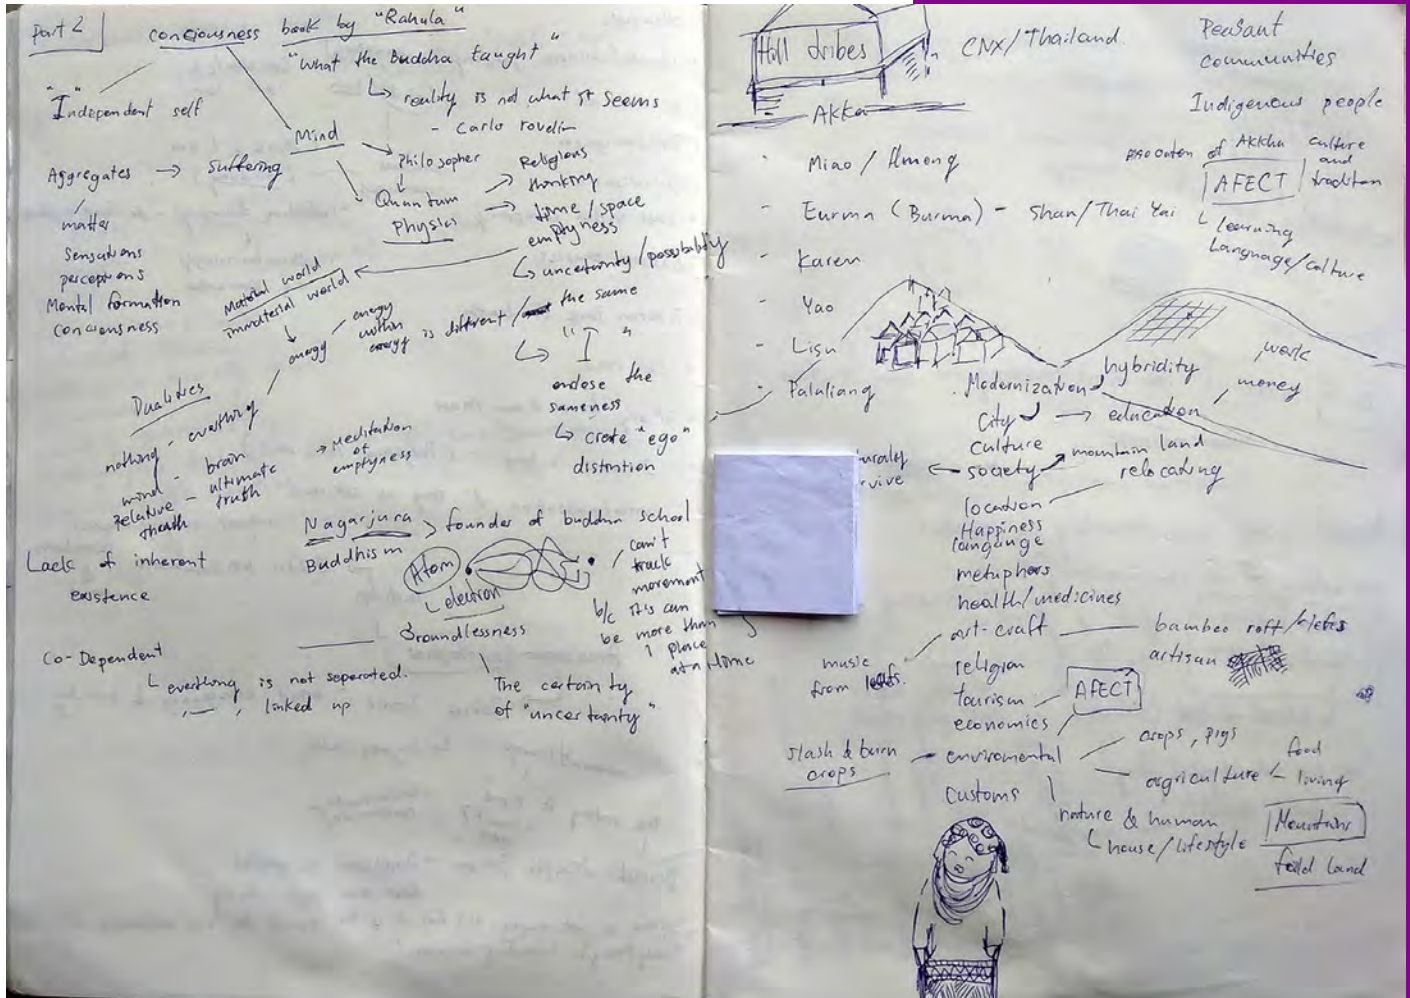 Part 2
conciousness book by "Rahula"
"What the Buddha taught"
↳ reality is not what it seems
- Carlo rovelin
"I"
Independent self
Mind
Aggregates → Suffering
matter
Sensations
perceptions
Mental formation
conciousness
Philosopher
Quantum
Physics
Religious
thinking
time / space
emptyness
↳ uncertainty / possibility
Material world
immaterial world
energy
energy
within
energy is different / the same
↳ "I"
endose the
sameness
↳ create "ego"
distintion
Dualities
nothing - everthing
mind - brain
Relative - ultimatic
truth
→ Meditation
of
emptyness
Nagarjura > founder of buddha school
Buddhism
Lack of inherent
existence
Atom
electron
Groundlessness
can't
track
movement
b/c it's can
be more than
1 place
at a time
Co-Dependent
everthing is not separated.
, — , linked up
The certainty
of "uncertainty"
Hill tribes
CNX/Thailand
Peasant
communities
Indigenous people
- Akka
- Miao / Hmong
- Eurma (Burma) - Shan/Thai Yai
- Karen
- Yao
- Lisu
- Palaliang
of AKKha culture
and
tradition
AFECT
learning
Language/culture
Modernization
hybridity
work
money
City → education
culture
society
mountain land
relocating
location
Happiness
language
metaphors
health/medicines
art-craft
bamboo
artisan
music
from
religion
tourism
economics
AFECT
slash & burn
crops
enviromental
crops, pigs
agriculture
food
living
Customs
nature & human
house/lifestyle
Mountains
land